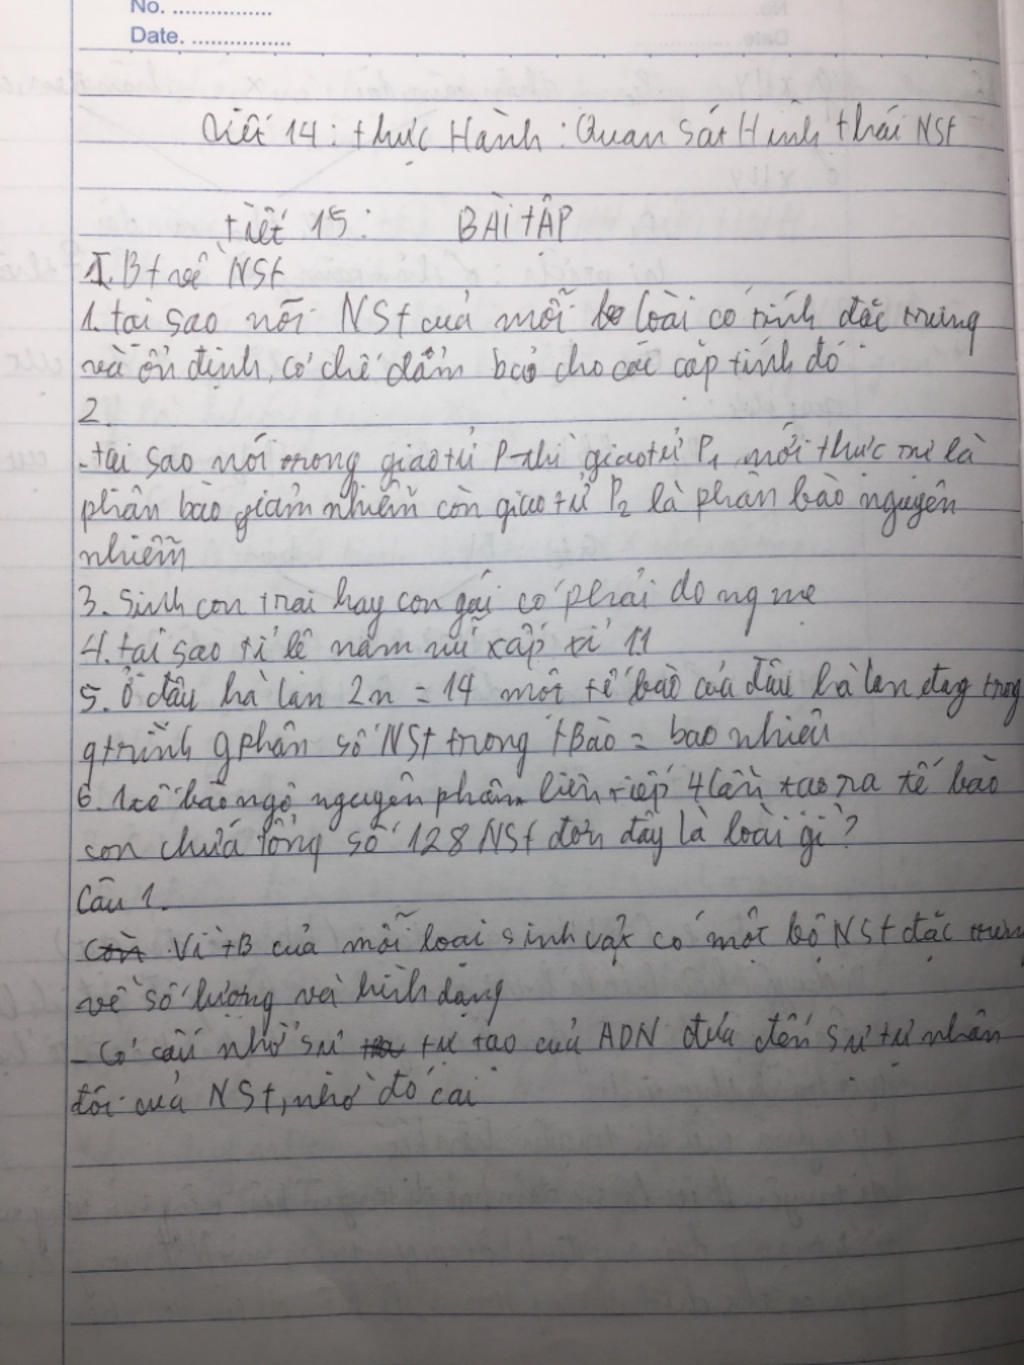 No. ................
Date. ................
Tiết 14: thực Hành: Quan sát Hình thái NSt
tiết 15: BÀI tẬP
I. Bt về NSt
1. tại sao nói NSt của mỗi loài có tính đặc trưng
và ổn định, cơ chế đảm bảo cho các cặp tính đó
2.
- tại sao nói trong giao tử P thì giao tử P1 mới thực sự là
phân bào giảm nhiễm còn giao tử P2 là phân bào nguyên
nhiễm
3. Sinh con trai hay con gái có phải do ng mẹ
4. tại sao tỉ lệ nam nữ xấp xỉ 1 1
5. Ở đậu hà lan 2n = 14 một tế bào của đậu hà lan đag trog
qtrình gphân số NSt trong tBào = bao nhiêu
6. 1 tế bào ngô nguyên phân liên tiếp 4 lần tạo ra tế bào
con chứa tổng số 128 NSt đơn đây là loài gì?
Câu 1.
Vì tB của mỗi loại sinh vật có một bộ NSt đặc trưng
về số lượng và hình dạng
- Cơ cấu nhờ sự tự tạo của ADN đưa đến sự tự nhân
đôi của NSt, nhờ đó cai